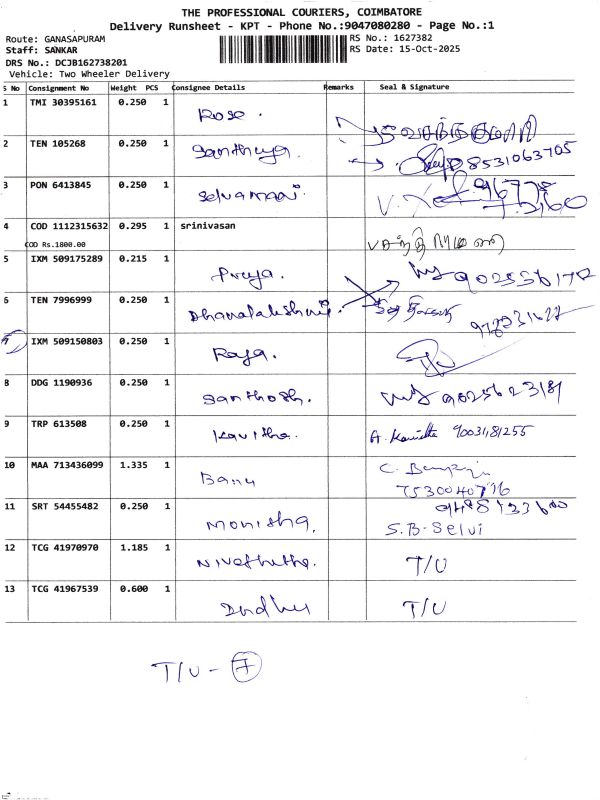 THE PROFESSIONAL COURIERS, COIMBATORE
Delivery Runsheet - KPT - Phone No.:9047080280 - Page No.:1
Route: GANASAPURAM
RS No.: 1627382
Staff: SANKAR
RS Date: 15-Oct-2025
DRS No.: DCJB162738201
Vehicle: Two Wheeler Delivery
S No Consignment No Weight PCS Consignee Details Remarks Seal & Signature
1 TMI 30395161 0.250 1 Rose.
2 TEN 105268 0.250 1 Santhiya. 8531063705
3 PON 6413845 0.250 1 Selvamani.
4 COD 1112315632 0.295 1 srinivasan
COD Rs.1800.00
5 IXM 509175289 0.215 1 Priya.
6 TEN 7996999 0.250 1 Dhanalakshmi.
7 IXM 509150803 0.250 1 Raja. T/U
8 DDG 1190936 0.250 1 Santhosh.
9 TRP 613508 0.250 1 Kavitha. A. Kavitha
10 MAA 713436099 1.335 1 Banu
7530040776
11 SRT 54455482 0.250 1 Monisha.
S.B-Selvi
12 TCG 41970970 1.185 1 Nivethitha. T/U
13 TCG 41967539 0.600 1 T/U
T/U - 7